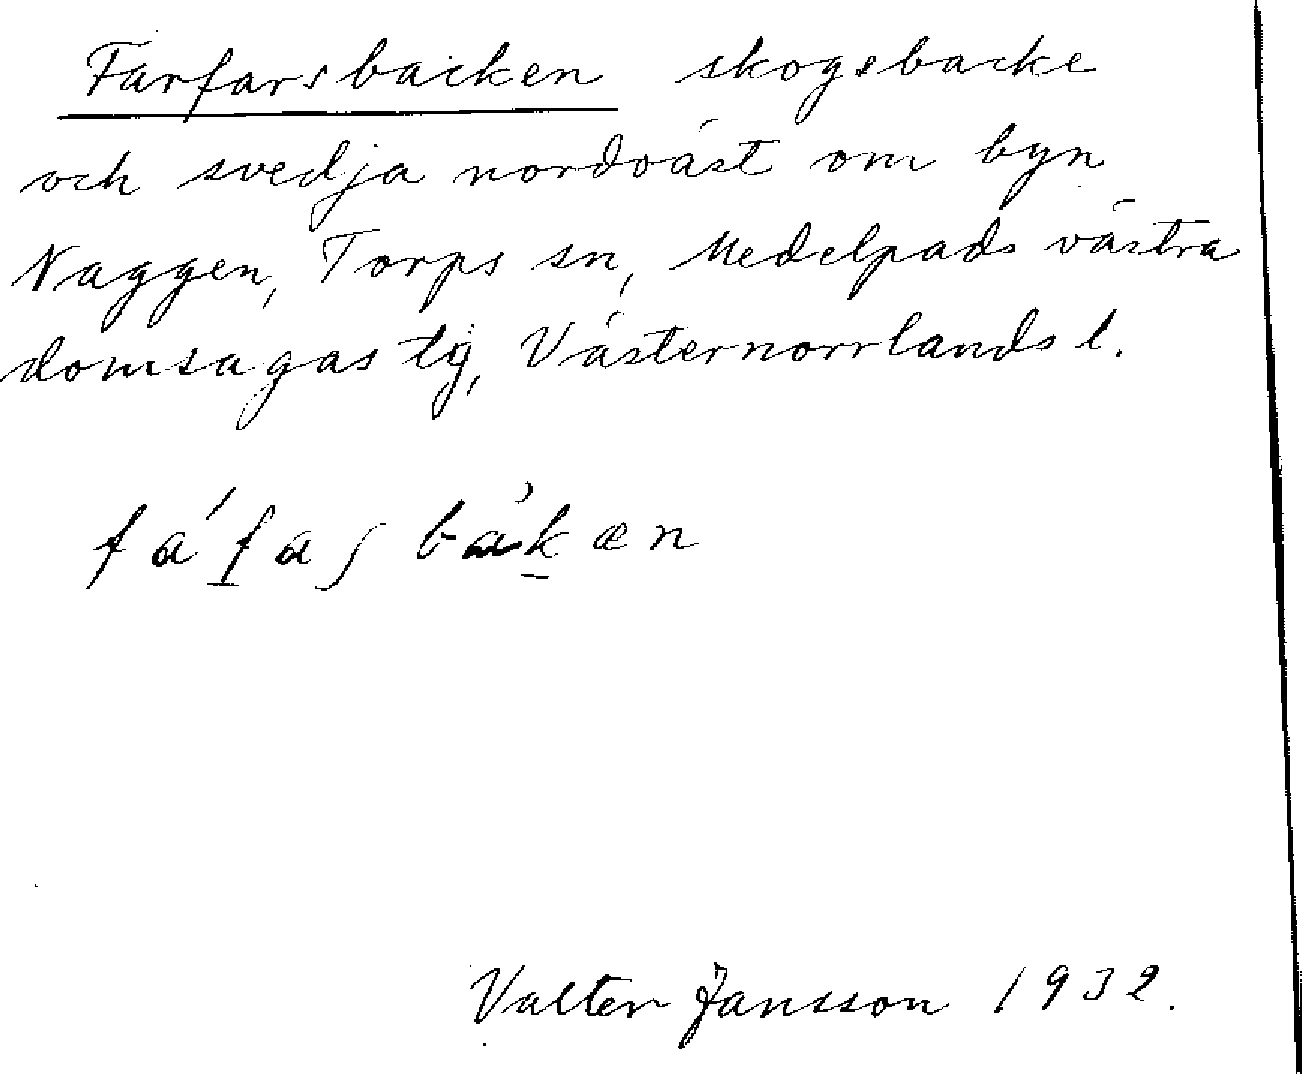 Farfarsbacken skogsbacke
och svedja nordväst om byn
Naggen, Torps sn, Medelpads västra
domsagas tg, Västernorrlands l.
fá́faſ bàken
Valter Jansson 1932.